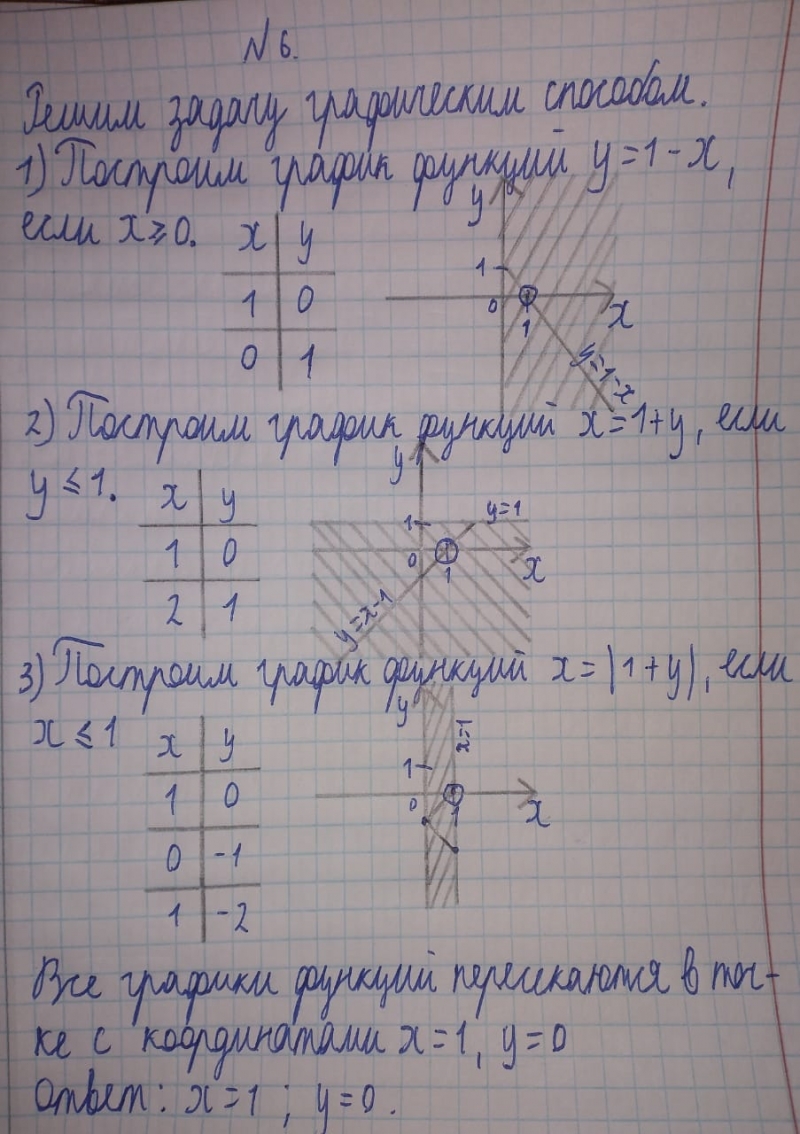 N 6.
Решим задачу графическим способом.
1) Построим график функций y=1-x,
если x⩾0.
x y
1 0
0 1
y
1
0
1
x
y=1-x
2) Построим график функций x=1+y, если
y⩽1.
x y
1 0
2 1
y
1
y=1
0
1
x
y=x-1
3) Построим график функций x=|1+y|, если
x⩽1
x y
1 0
0 -1
1 -2
y
x=1
1
0
1
x
Все графики функций пересекаются в точ-
ке с координатами x=1, y=0
Ответ: x=1; y=0.